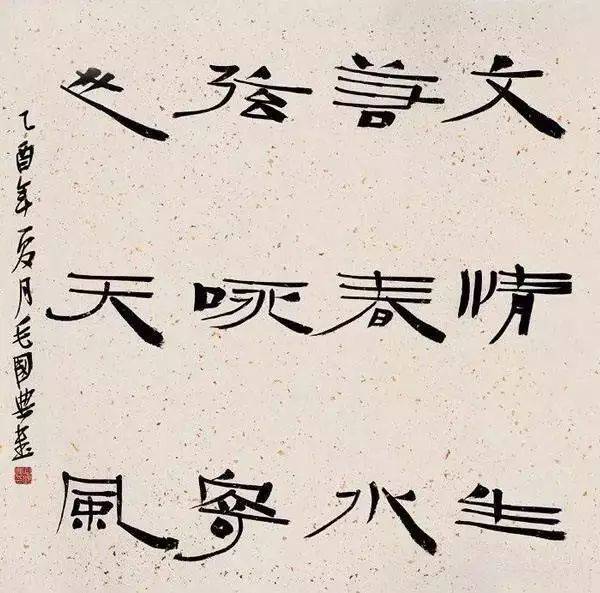 文情生
若春水
弦咏寄
之天風
乙酉年夏月毛國典書